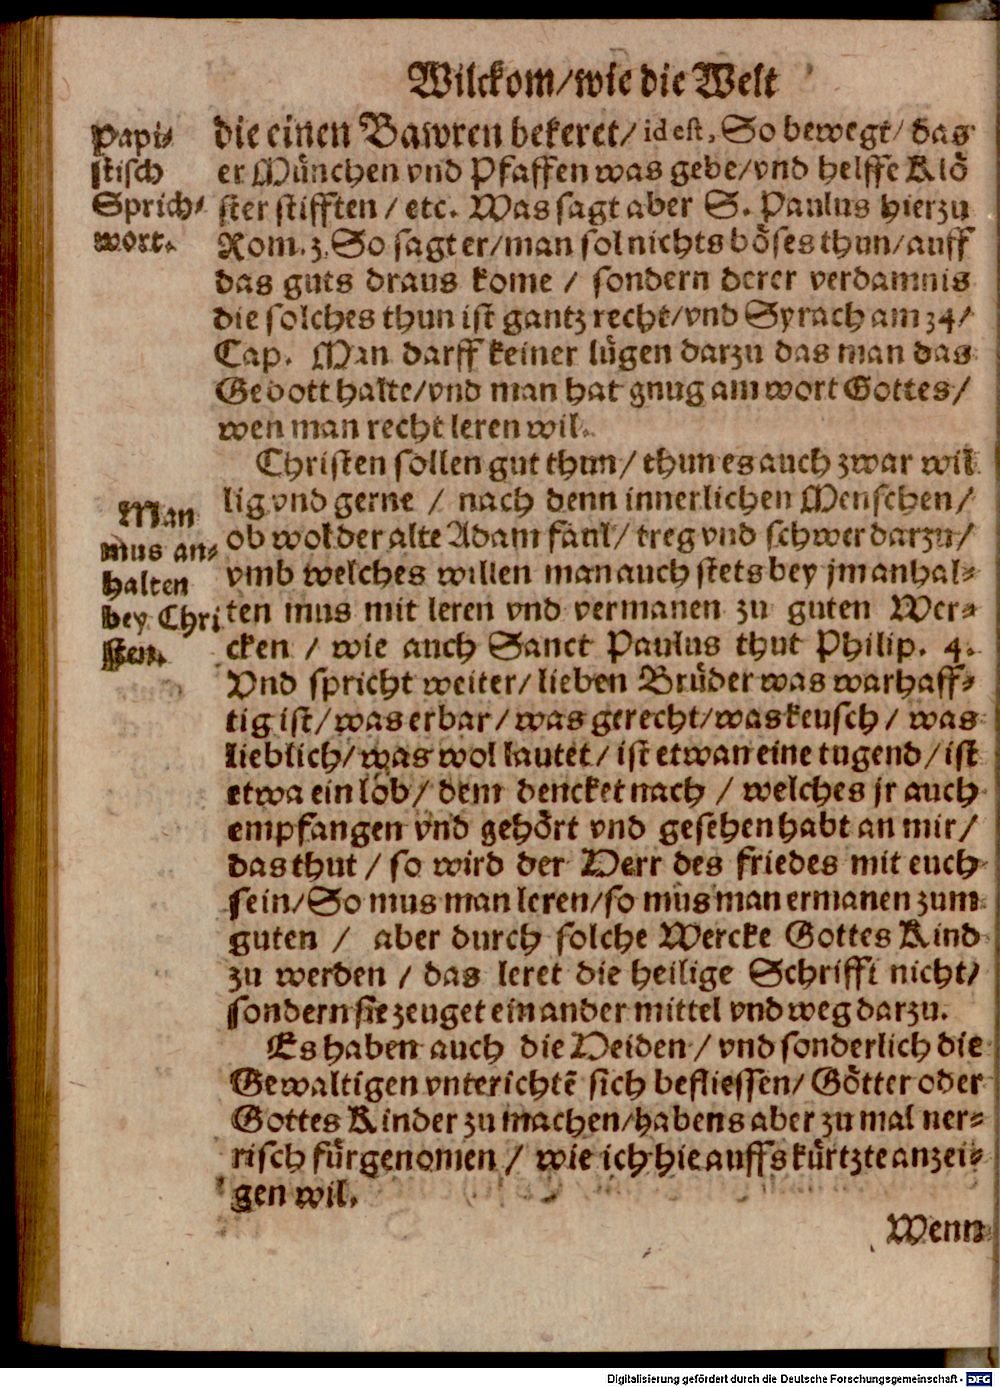 Wilckom/wie die Welt
Papi-
stisch
Sprich-
wort.
die einen Bawren bekeret/ id est, So bewegt/ das
er München vnd Pfaffen was gebe/vnd helffe Klö
ster stifften / etc. Was sagt aber S. Paulus hierzu
Rom. 3. So sagt er/man sol nichts böses thun/auff
das guts draus kome / sondern derer verdamnis
die solches thun ist gantz recht/vnd Syrach am 34/
Cap. Man darff keiner lügen darzu das man das
Gebott halte/vnd man hat gnug am wort Gottes/
wen man recht leren wil.
Christen sollen gut thun/ thun es auch zwar wil
lig vnd gerne / nach denn innerlichen Menschen/
ob wol der alte Adam faul/ treg vnd schwer darzu/
vmb welches willen man auch stets bey jm anhal-
ten mus mit leren vnd vermanen zu guten Wer-
cken / wie auch Sanct Paulus thut Philip. 4.
Vnd spricht weiter/ lieben Brüder was warhaff-
tig ist/ was erbar/ was gerecht/was keusch/ was
lieblich/was wol lautet/ ist etwan eine tugend/ist
etwa ein lob/ dem dencket nach / welches jr auch
empfangen vnd gehört vnd gesehen habt an mir/
das thut / so wird der Herr des friedes mit euch
sein/So mus man leren/so mus man ermanen zum
guten / aber durch solche Wercke Gottes Kind
zu werden / das leret die heilige Schrifft nicht/
sondern sie zeuget ein ander mittel vnd weg darzu.
Man
mus an-
halten
bey Chri
sten.
Es haben auch die Heiden / vnd sonderlich die
Gewaltigen vnterichtē sich befliessen/ Götter oder
Gottes Kinder zu machen/habens aber zu mal ner-
risch fürgenomen / wie ich hie auffs kürtzte anzei-
gen wil.
Wenn
Digitalisierung gefördert durch die Deutsche Forschungsgemeinschaft - DFG